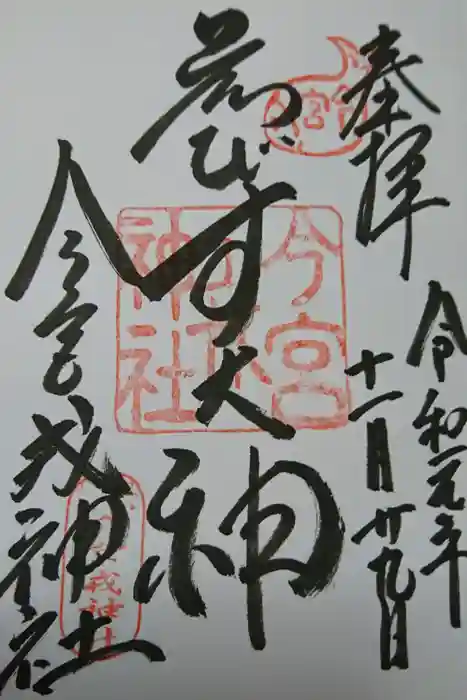 奉拝
令和元年
十一月廿九日
今宮
ゑびす大神
今宮
戎
神社
今宮戎神社
戎神社